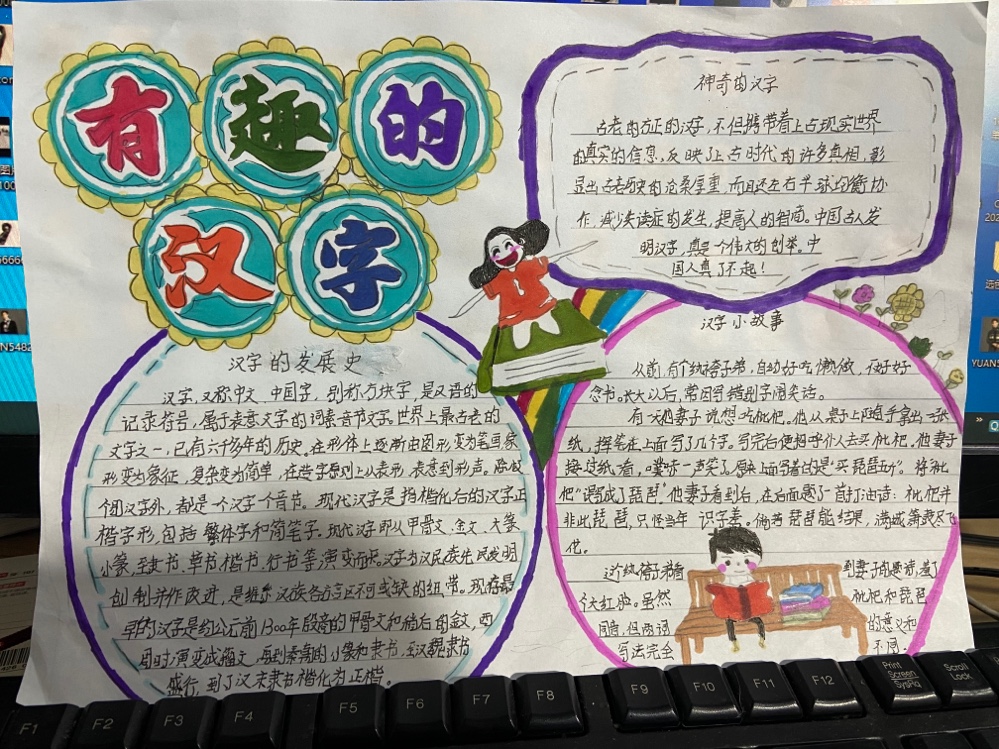 有趣的
汉字
神奇的汉字
古老的方正的汉字,不但携带着上古现实世界
的真实的信息,反映了上古时代的许多真相,彰
显出古老历史的沧桑厚重,而且还左右半球均衡协
作,减少失读症的发生,提高人的智商。中国古人发
明汉字,真是一个伟大的创举。中
国人真了不起!
汉字的发展史
汉字,又称中文、中国字,别称方块字,是汉语的
记录符号,属于表意文字的词素音节文字。世界上最古老的
文字之一,已有六千多年的历史。在形体上逐渐由图形变为笔画,象
形变为象征,复杂变为简单,在造字原则上从表形、表意到形声。除极
个别汉字外,都是一个汉字一个音节。现代汉字是指楷化后的汉字正
楷字形,包括繁体字和简笔字。现代汉字即从甲骨文、金文、大篆、
小篆、至隶书、草书、楷书、行书等演变而来。汉字为汉民族先民发明
创制并作改进,是维系汉族各方言区不可或缺的纽带。现存最
早的汉字是约公元前1300年殷商的甲骨文和稍后的金文,西
周时演变成籀文,再到秦朝的小篆和隶书,至汉魏隶书
盛行,到了汉末隶书楷化为正楷。
汉字小故事
从前,有个纨绔子弟,自幼好吃懒做,不好好
念书。长大以后,常因写错别字闹笑话。
有一天他妻子说想吃枇杷。他从桌子上随手拿出一张
纸,挥笔在上面写了几个字。写完后便招呼仆人去买枇杷。他妻子
接过纸看,噗哧一声笑了,原来上面写着的是"买琵琶五斤"。将"枇
杷"误写成了"琵琶"他妻子看到后,在后面题了一首打油诗:枇杷并
非此琵琶,只怪当年识字差。倘若琵琶能结果,满城箫鼓尽飞
花。
这个纨绔子弟看
到妻子的题诗,羞了
个大红脸。虽然
枇杷和琵琶
同音,但两词
的意义和
写法完全
不同。
F1
F2
F3
F4
F5
F6
F7
F8
F9
F10
F11
F12
Print
Screen
SysRq
Scroll
Lock